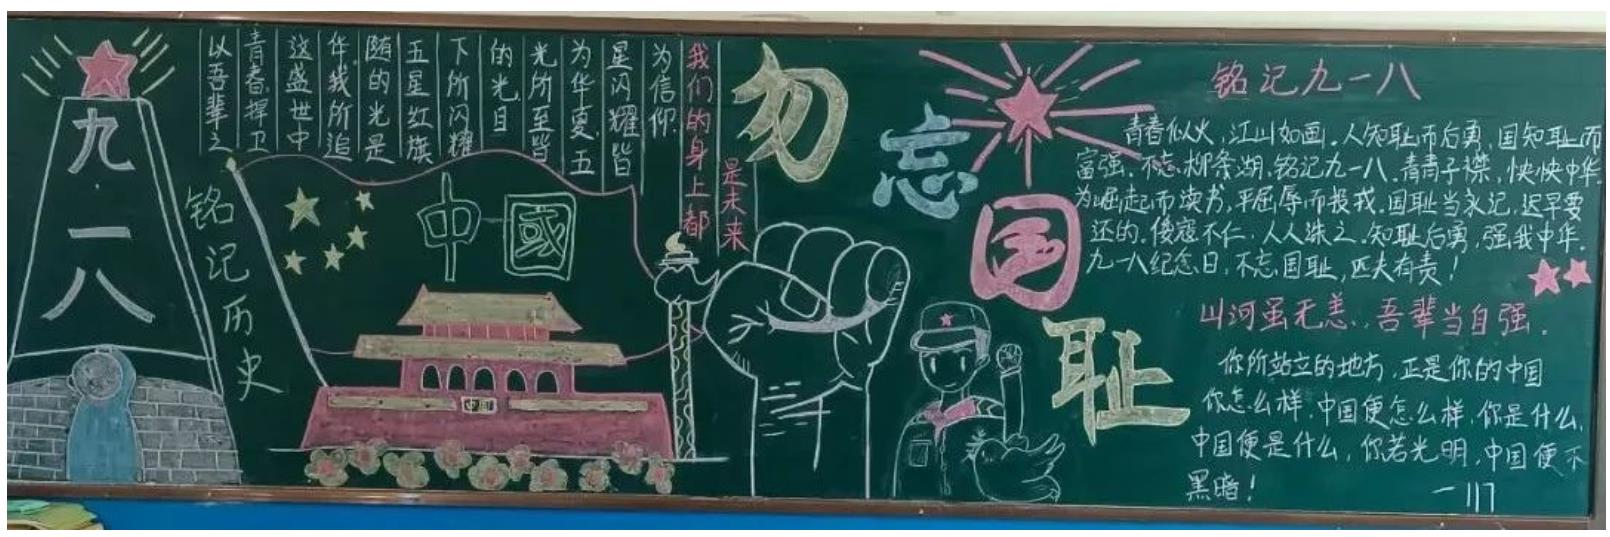 九·一八
铭记历史
以吾辈之
青春捍卫
这盛世中
华.我所追
随的光是
五星红旗
下所闪耀
的光.目
光所至皆
为华夏.五
星闪耀皆
为信仰.
我们的身上都
是未来
中國
中国
勿忘国耻
铭记九一八
青春似火,江山如画.人知耻而后勇,国知耻而
富强.不忘柳条湖,铭记九一八.青青子襟,怏怏中华.
为崛起而读书,平屈辱而投戎.国耻当永记,迟早要
还的.倭寇不仁,人人诛之.知耻后勇,强我中华.
九一八纪念日,不忘国耻,匹夫有责!
山河虽无恙,吾辈当自强.
你所站立的地方,正是你的中国
你怎么样,中国便怎么样,你是什么,
中国便是什么,你若光明,中国便不
黑暗!
一117